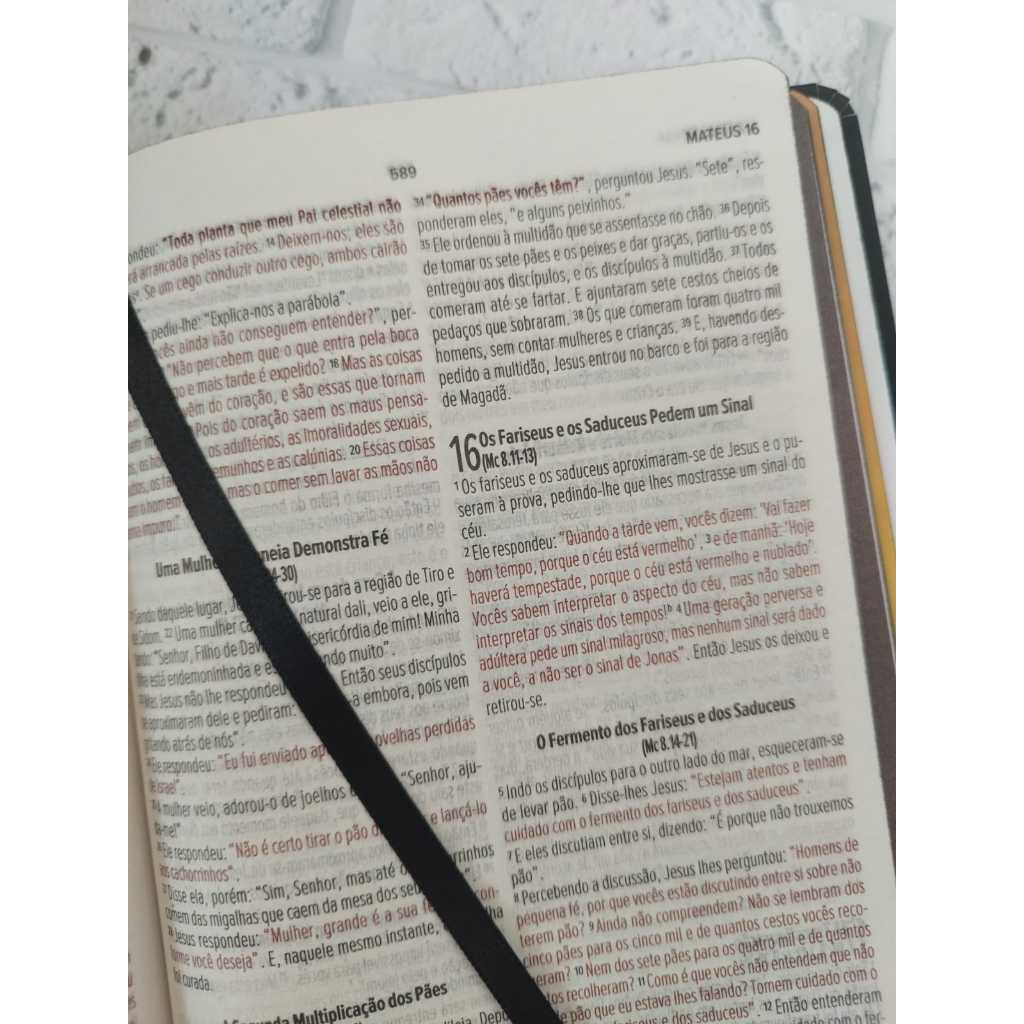 589
MATEUS 16
ondeu: "Toda planta que meu Pai celestial não
rá arrancada pelas raízes. 14 Deixem-nos; eles são
Se um cego conduzir outro cego, ambos cairão
pediu-lhe: "Explica-nos a parábola".
cês ainda não conseguem entender?", per-
"Não percebem que o que entra pela boca
go e mais tarde é expelido? 18 Mas as coisas
vêm do coração, e são essas que tornam
Pois do coração saem os maus pensa-
os adultérios, as imoralidades sexuais,
emunhos e as calúnias. 20 Essas coisas
mas o comer sem lavar as mãos não
impuro."
Uma Mulhe neia Demonstra Fé
4-30)
Saindo daquele lugar, Je rou-se para a região de Tiro e
de Sidom. 22 Uma mulher ca natural dali, veio a ele, gri-
tando: "Senhor, Filho de Davi isericórdia de mim! Minha
filha está endemoninhada e es ndo muito".
Mas Jesus não lhe respondeu Então seus discípulos
se aproximaram dele e pediram: a embora, pois vem
gritando atrás de nós".
Ele respondeu: "Eu fui enviado ap ovelhas perdidas
de Israel".
A mulher veio, adorou-o de joelhos "Senhor, aju-
da-me!"
Ele respondeu: "Não é certo tirar o pão d e lançá-lo
aos cachorrinhos".
Disse ela, porém: "Sim, Senhor, mas até o orrinhos
comem das migalhas que caem da mesa dos seu
Jesus respondeu: "Mulher, grande é a sua con-
forme você deseja". E, naquele mesmo instante, lha
foi curada.
Segunda Multiplicação dos Pães
34 "Quantos pães vocês têm?", perguntou Jesus. "Sete", res-
ponderam eles, "e alguns peixinhos."
35 Ele ordenou à multidão que se assentasse no chão. 36 Depois
de tomar os sete pães e os peixes e dar graças, partiu-os e os
entregou aos discípulos, e os discípulos à multidão. 37 Todos
comeram até se fartar. E ajuntaram sete cestos cheios de
pedaços que sobraram. 38 Os que comeram foram quatro mil
homens, sem contar mulheres e crianças. 39 E, havendo des-
pedido a multidão, Jesus entrou no barco e foi para a região
de Magadã.
16 Os Fariseus e os Saduceus Pedem um Sinal
(Mc 8.11-13)
1 Os fariseus e os saduceus aproximaram-se de Jesus e o pu-
seram à prova, pedindo-lhe que lhes mostrasse um sinal do
céu.
2 Ele respondeu: "Quando a tarde vem, vocês dizem: 'Vai fazer
bom tempo, porque o céu está vermelho', 3 e de manhã: 'Hoje
haverá tempestade, porque o céu está vermelho e nublado'.
Vocês sabem interpretar o aspecto do céu, mas não sabem
interpretar os sinais dos tempos!b 4 Uma geração perversa e
adúltera pede um sinal milagroso, mas nenhum sinal será dado
a você, a não ser o sinal de Jonas". Então Jesus os deixou e
retirou-se.
O Fermento dos Fariseus e dos Saduceus
(Mc 8.14-21)
5 Indo os discípulos para o outro lado do mar, esqueceram-se
de levar pão. 6 Disse-lhes Jesus: "Estejam atentos e tenham
cuidado com o fermento dos fariseus e dos saduceus".
7 E eles discutiam entre si, dizendo: "É porque não trouxemos
pão".
8 Percebendo a discussão, Jesus lhes perguntou: "Homens de
pequena fé, por que vocês estão discutindo entre si sobre não
terem pão? 9 Ainda não compreendem? Não se lembram dos
cinco pães para os cinco mil e de quantos cestos vocês reco-
lheram? 10 Nem dos sete pães para os quatro mil e de quantos
tos recolheram? 11 Como é que vocês não entendem que não
de pão que eu estava lhes falando? Tornem cuidado com o
fariseus e dos saduceus". 12 Então entenderam
cuidado com o fer-